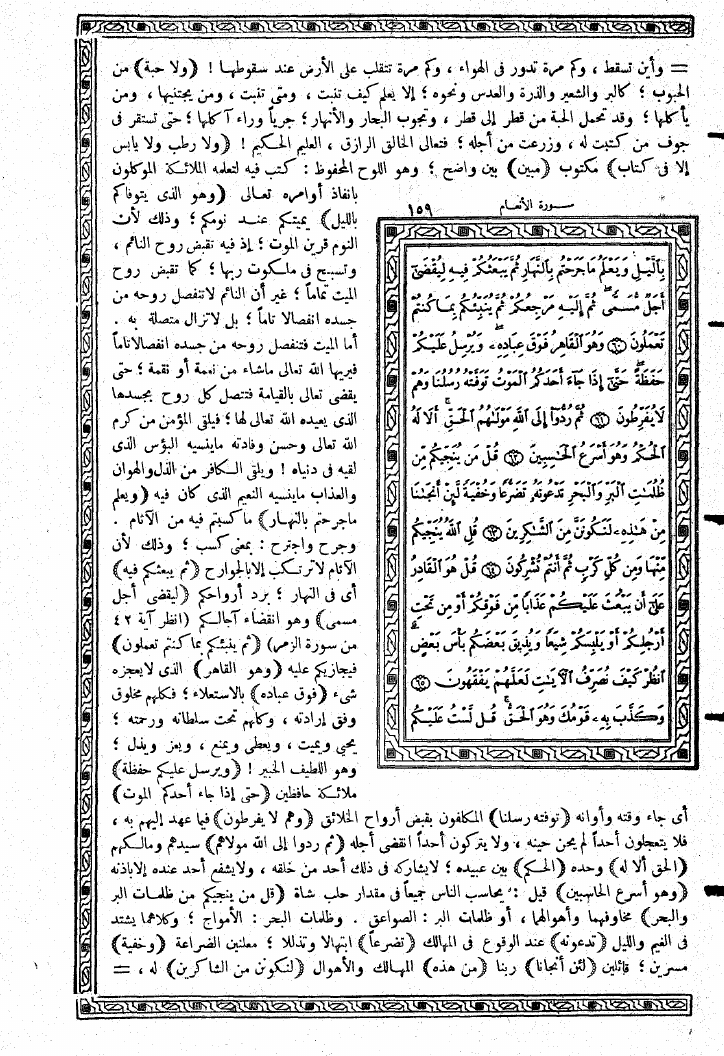 = وأين تسقط ، وكم مرة تدور فى الهواء ، وكم مرة تتقلب على الأرض عند سقوطها ! (ولا حبة) من
الحبوب ؛ كالبر والشعير والذرة والعدس ونحوه ؛ إلا يعلم كيف تنبت ، ومتى تنبت ، ومن يجتنيها ، ومن
يأكلها ؛ وقد تحمل الحبة من قطر إلى قطر ، وتجوب البحار والأنهار ؛ جرياً وراء آكلها ؛ حتى تستقر فى
جوف من كتبت له ، وزرعت من أجله ؛ فتعالى الخالق الرازق ، العليم الحكيم ! (ولا رطب ولا يابس
إلا فى كتاب) مكتوب (مبين) بين واضح ؛ وهو اللوح المحفوظ : كتب فيه لتعلمه الملائكة الموكلون
بانفاذ أوامره تعالى (وهو الذى يتوفاكم
بالليل) يميتكم عنـد نومكم ؛ وذلك لأن
النوم قرين الموت ؛ إذ فيه تقبض روح النائم ،
وتسبح فى ملكوت ربها ؛ كما تقبض روح
الميت تماماً ؛ غير أن النائم لاتنفصل روحه من
جسده انفصالا تاماً ؛ بل لاتزال متصلة به .
أما الميت فتنفصل روحه من جسده انفصالاتاماً
فيريها الله تعالى ماشاء من نعمة أو نقمة ؛ حتى
يقضى تعالى بالقيامة فتتصل كل روح بجسدها
الذى يعيده الله تعالى لها ؛ فيلقى المؤمن من كرم
الله تعالى وحسن وفادته ماينسيه البؤس الذى
لقيه فى دنياه ! ويلقى الـكافر من الذل والهوان
والعذاب ماينسيه النعيم الذى كان فيه (ويعلم
ماجرحتم بالنهـار) ماكسبتم فيه من الآثام .
وجرح واجترح : بمعنى كسب ؛ وذلك لأن
الآثام لاترتكب إلابالجوارح (ثم يبعثكم فيه)
أى فى النهار ؛ برد أرواحكم (ليقضى أجل
مسمى) وهو انقضاء آجالكم (انظر آية ٤٢
من سورة الزمر) (ثم ينبئكم بما كنتم تعملون)
فيجازيكم عليه (وهو القاهر) الذى لايعجزه
شىء (فوق عباده) بالاستعلاء ؛ فكلهم مخلوق
وفق إرادته ، وكلهم تحت سلطانه ورحمته ؛
يحيى ويميت ، ويعطى ويمنع ، ويعز ويذل ؛
وهو اللطيف الخبير ! (ويرسل عليكم حفظة)
ملائكة حافظين (حتى إذا جاء أحدكم الموت)
سـورة الأنعـام ١٥٩
بِٱلَّيْلِ وَيَعْلَمُ مَا جَرَحْتُم بِٱلنَّهَارِ ثُمَّ يَبْعَثُكُمْ فِيهِ لِيُقْضَىٰٓ
أَجَلٌ مُّسَمًّى ثُمَّ إِلَيْهِ مَرْجِعُكُمْ ثُمَّ يُنَبِّئُكُم بِمَا كُنتُمْ
تَعْمَلُونَ ٦٠ وَهُوَ ٱلْقَاهِرُ فَوْقَ عِبَادِهِۦ وَيُرْسِلُ عَلَيْكُمْ
حَفَظَةً حَتَّىٰٓ إِذَا جَآءَ أَحَدَكُمُ ٱلْمَوْتُ تَوَفَّتْهُ رُسُلُنَا وَهُمْ
لَا يُفَرِّطُونَ ٦١ ثُمَّ رُدُّوٓا۟ إِلَى ٱللَّهِ مَوْلَىٰهُمُ ٱلْحَقِّ أَلَا لَهُ
ٱلْحُكْمُ وَهُوَ أَسْرَعُ ٱلْحَٰسِبِينَ ٦٢ قُلْ مَن يُنَجِّيكُم مِّن
ظُلُمَٰتِ ٱلْبَرِّ وَٱلْبَحْرِ تَدْعُونَهُۥ تَضَرُّعًا وَخُفْيَةً لَّئِنْ أَنجَىٰنَا
مِنْ هَٰذِهِۦ لَنَكُونَنَّ مِنَ ٱلشَّٰكِرِينَ ٦٣ قُلِ ٱللَّهُ يُنَجِّيكُم
مِّنْهَا وَمِن كُلِّ كَرْبٍ ثُمَّ أَنتُمْ تُشْرِكُونَ ٦٤ قُلْ هُوَ ٱلْقَادِرُ
عَلَىٰٓ أَن يَبْعَثَ عَلَيْكُمْ عَذَابًا مِّن فَوْقِكُمْ أَوْ مِن تَحْتِ
أَرْجُلِكُمْ أَوْ يَلْبِسَكُمْ شِيَعًا وَيُذِيقَ بَعْضَكُم بَأْسَ بَعْضٍ
ٱنظُرْ كَيْفَ نُصَرِّفُ ٱلْءَايَٰتِ لَعَلَّهُمْ يَفْقَهُونَ ٦٥
وَكَذَّبَ بِهِۦ قَوْمُكَ وَهُوَ ٱلْحَقُّ قُل لَّسْتُ عَلَيْكُم
أى جاء وقته وأوانه (توفته رسلنا) المكلفون بقبض أرواح الخلائق (وهم لا يفرطون) فيما عهد إليهم به ،
فلا يتعجلون أحداً لم يحن حينه ، ولا يتركون أحداً انقضى أجله (ثم ردوا إلى الله مولاهم) سيدهم ومالـكهم
(الحق ألا له) وحده (الحكم) بين عبيده ؛ لايشاركه فى ذلك أحد من خلقه ، ولايشفع أحد عنده إلاباذنه
(وهو أسرع الحاسبين) قيل : يحاسب الناس جميعاً فى مقدار حلب شاة (قل من ينجيكم من ظلمات البر
والبحر) مخاوفهما وأهوالهما ، أو ظلمات البر : الصواعق . وظلمات البحر : الأمواج ؛ وكلاهما يشتد
فى الغيم والليل (تدعونه) عند الوقوع فى المهالك (تضرعاً) ابتهالا وتذللا ؛ معلنين الضراعة (وخفية)
مسرين ؛ قائلين (لئن أنجانا) ربنا (من هذه) المهالك والأهوال (لنكونن من الشاكرين) له ، =